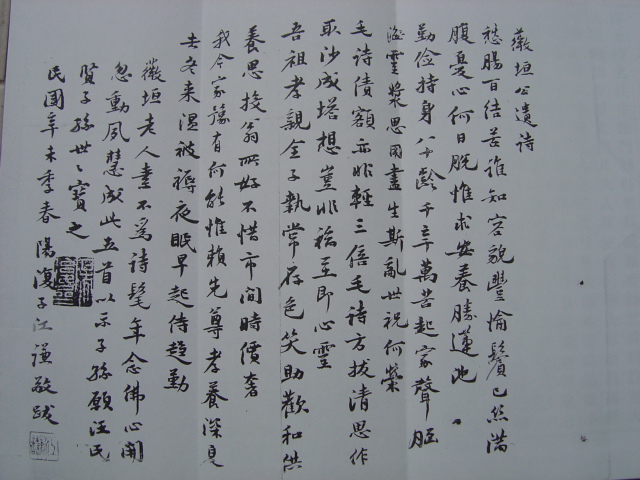 薇垣公遺詩
愁腸百結苦誰知容貌豐愉鬢已絲滿
腹憂心何日脫惟求安養勝蓮池
勤儉持身八十齡千辛萬苦起家聲
雲漿思罔盡生斯亂世祝何榮
毛詩債額亦非輕三倍毛詩方拔清思作
聚沙成塔想豈非福至即心靈
吾祖孝親全子執常存色笑助歡和供
養思投翁所好不惜市間時價奢
我今家豫有何能惟賴先尊孝養深夏
去冬來溫被褥夜眠早起侍趨勤
薇垣老人素不為詩髦年念佛心開
忽動夙慧成此五首以示子孫願汪氏
賢子孫世々寶之
民國辛未季春陽復子江謙敬跋